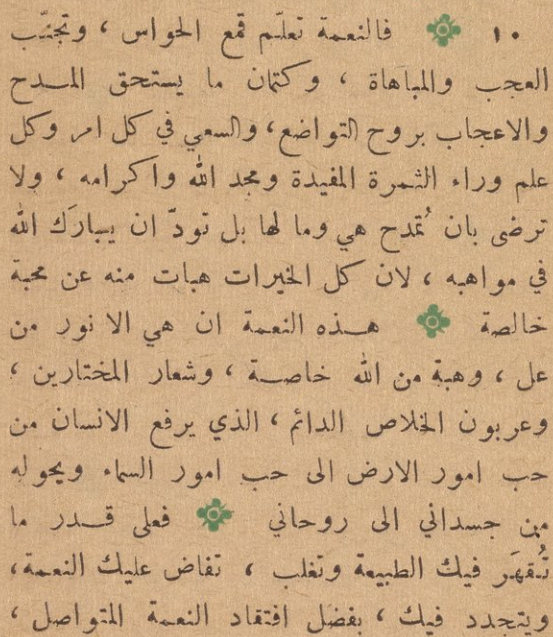 ١٠ فالنعمة تعلّم قمع الحواس ، وتجنّب
العجب والمباهاة ، وكتمان ما يستحق المدح
والاعجاب بروح التواضع، والسعي في كل امر وكل
علم وراء الثمرة المفيدة ومجد الله واكرامه ، ولا
ترضى بان تُمدح هي وما لها بل تودّ ان يبارَك الله
في مواهبه ، لان كل الخيرات هبات منه عن محبة
خالصة هذه النعمة ان هي الا نور من
عل ، وهبة من الله خاصة ، وشعار المختارين ،
وعربون الخلاص الدائم ، الذي يرفع الانسان من
حب امور الارض الى حب امور السماء ويحوله
من جسداني الى روحاني فعلى قدر ما
تُقهَر فيك الطبيعة وتغلب ، تفاض عليك النعمة،
ويتجدد فيك ، بفضل افتقاد النعمة المتواصل ،